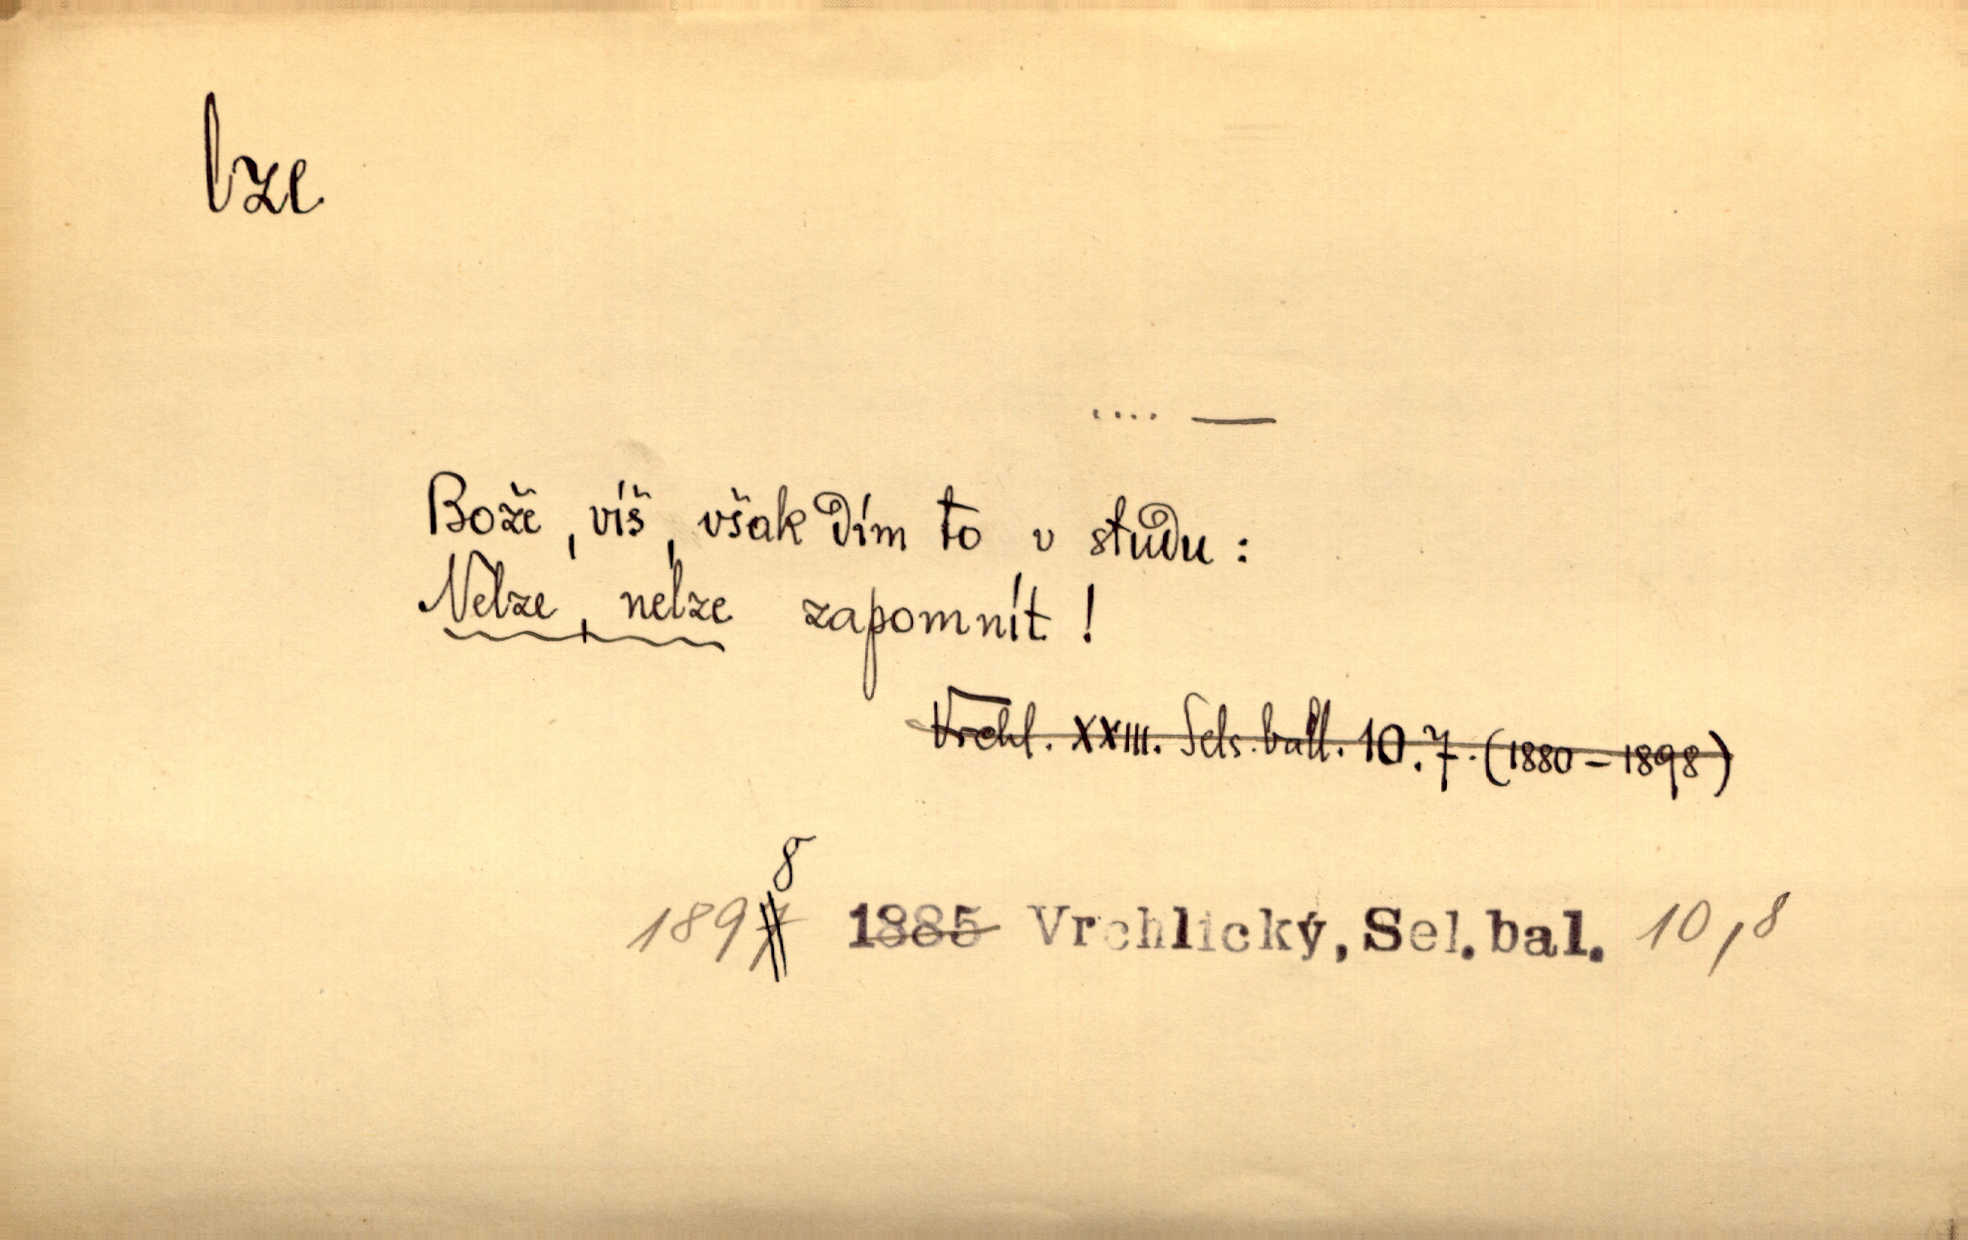 lze
.... —
Bože, víš, však dím to v studu:
Nelze, nelze zapomnít!
Vrchl. XXIII. Sels. ball. 10.7. (1880–1898)
8
1897 1885 Vrchlický, Sel. bal. 10,8